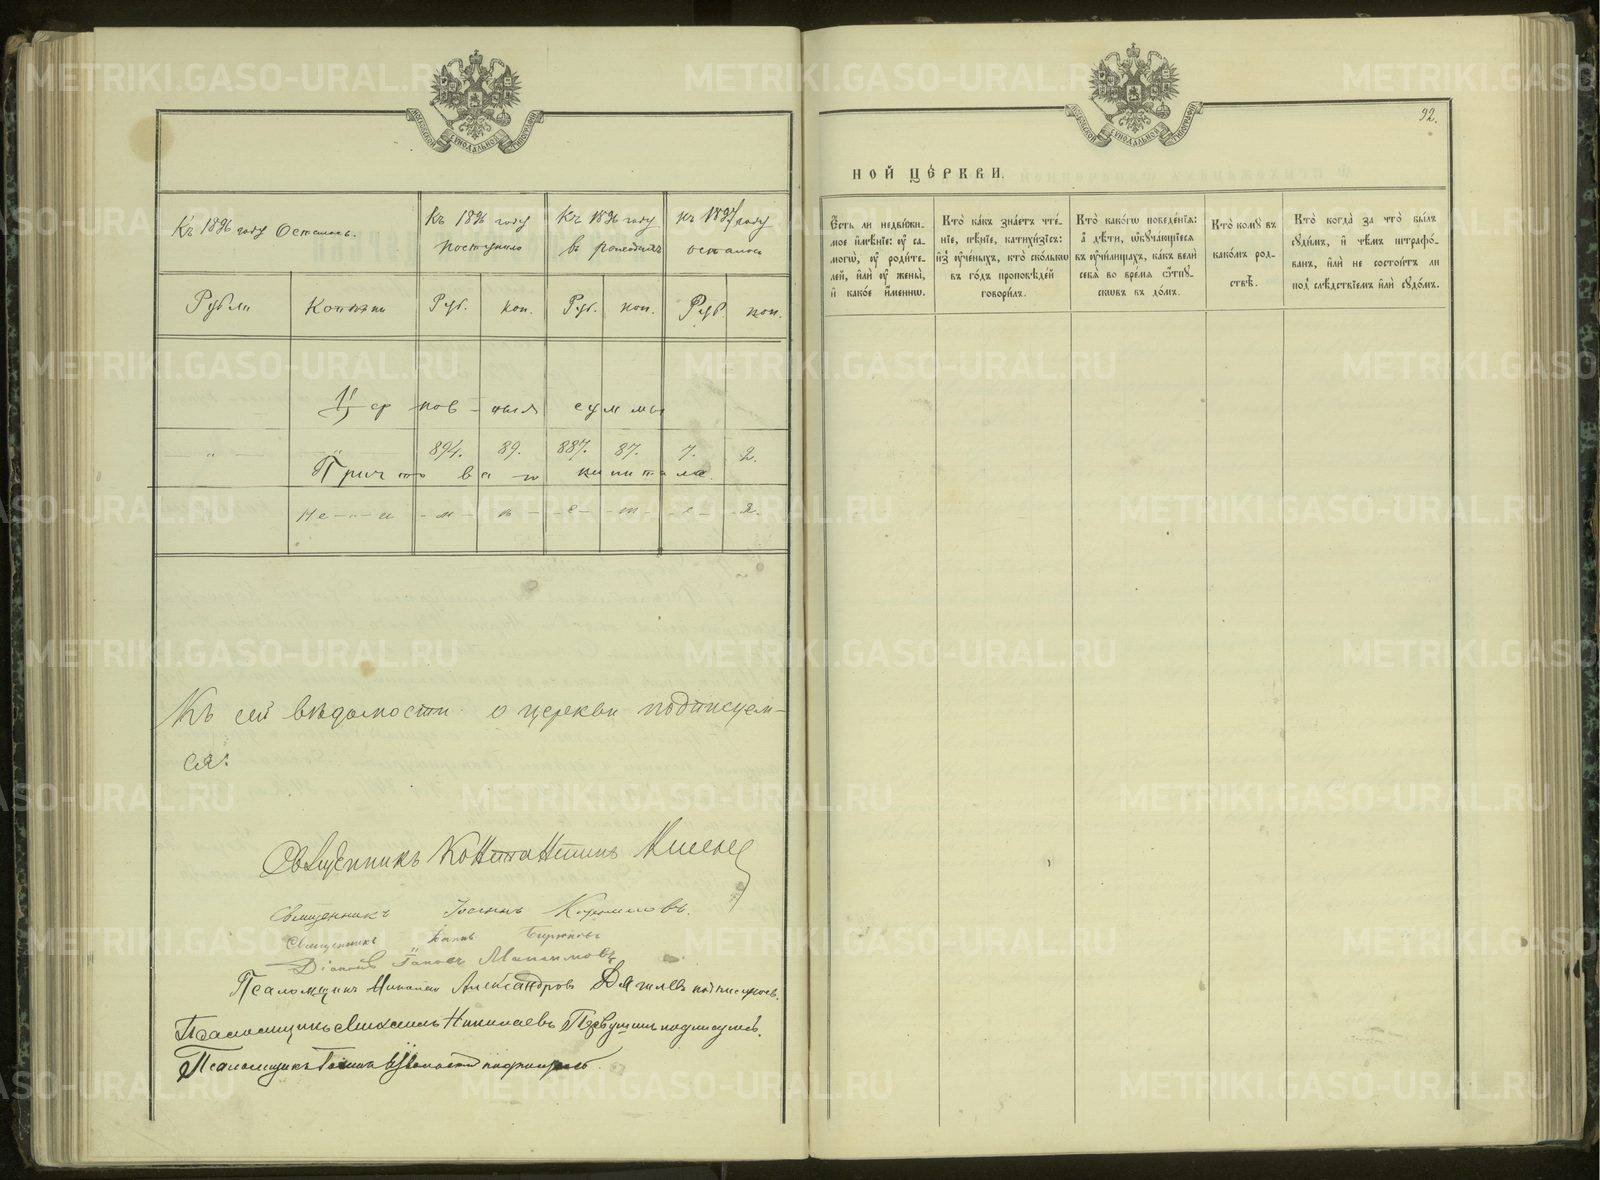 МОСКОВСКОЙ СѴНОДАЛЬНОЙ ТИПОГРАФІИ
Къ 1896 году Осталось.
Къ 1896 году поступило
Къ 1896 году въ расходѣ
Къ 1897 году осталось
Рубли
Копѣйки
Руб.
коп.
Руб.
коп.
Руб.
коп.
Церковныя суммы
" " 894. 89. 887. 87. 7. 2.
Причтоваго капитала
Не имѣется.
Къ сей вѣдомости о церкви подписуем-
ся:
Священникъ Константинъ
Священникъ Іоаннъ
Священникъ
Діаконъ Максимовъ
Псаломщикъ Николай Александровъ Дягилевъ подписуюсь.
Псаломщикъ Михаилъ Николаевъ Первушинъ подписуюсь.
Псаломщикъ
МОСКОВСКОЙ СѴНОДАЛЬНОЙ ТИПОГРАФІИ
92.
НОЙ ЦЕ́РКВИ.
Є҆́сть ли недви́жи-
мое и҆мѣ́нїе: ᲂу҆ са-
могѡ̀, ᲂу҆ роди́те-
лей, и҆лѝ ᲂу҆ жены̀,
и҆ како́е и҆́меннѡ.
Кто̀ ка́къ зна́етъ чте́-
нїе, пѣ́нїе, катихи́зїсъ:
и҆з̾ ᲂу҆че́ныхъ, кто̀ ско́лькѡ
въ го́дъ проповѣ́дей
говори́лъ.
Кто̀ како́гѡ поведе́нїя:
а҆ дѣ́ти, ѡ҆буча́ющїеся
въ ᲂу҆чи́лищахъ, ка́къ велѝ
себѧ̀ во вре́мѧ ѿпу-
скѡвъ въ до́мъ.
Кто̀ комꙋ̀ въ
како́мъ род-
ствѣ̀.
Кто̀ когда̀ за что̀ бы́лъ
сꙋди́мъ, и҆ чѣ́мъ штрафо́-
ванъ, и҆лѝ не состои́тъ ли
под̾ слѣ́дствїемъ и҆лѝ сꙋдо́мъ.
METRIKI.GASO-URAL.RU